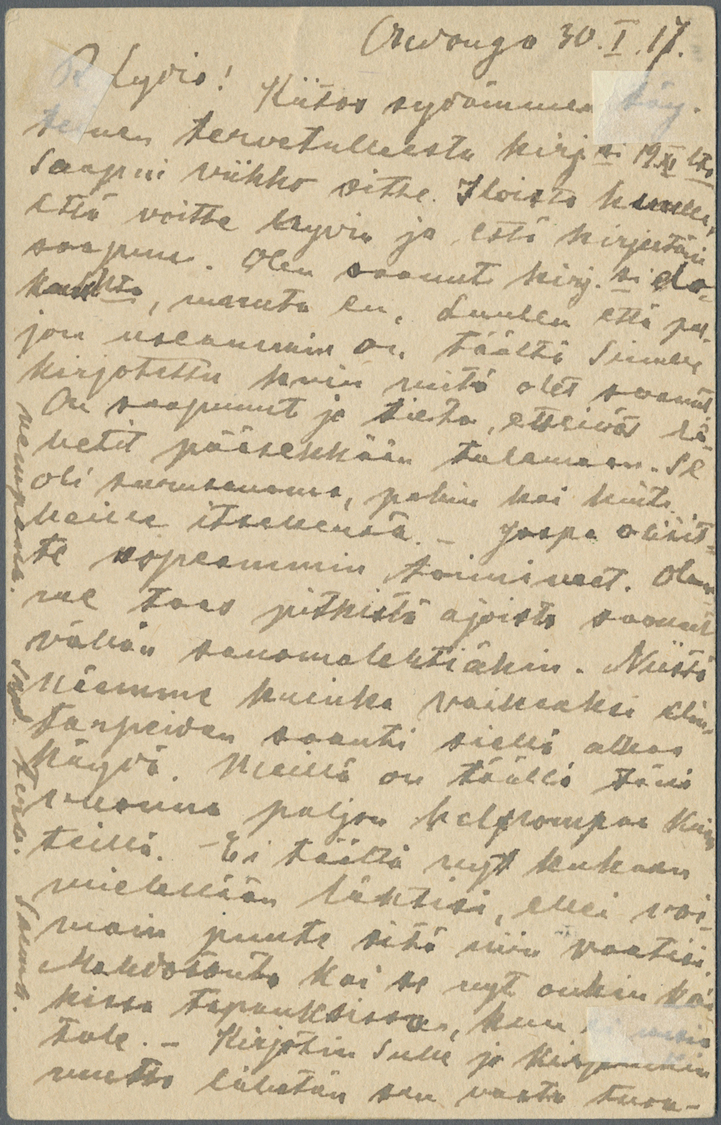 30.I.17.
R Lyvia! Kiitos sydämmen täy-
teinen tervetulleesta kirj.
saapui viikko sitte. Iloista kuulla,
että voitte hyvin ja että kirjeitäni
saapuu. Olen saanut kirj.
muuta en. Luulen että pal-
jon useammin on täältä Sinulle
kirjotettu kuin mitä olet saanut.
On saapunut ja tieto, etteivät lä-
hetit pääsekkään tulemaan. Se
oli surusanoma, pahin kai kuite.
heille itsellensä. – Jospa olisit-
te nopeammin toimineet. Olem-
me taas pitkistä ajoista saaneet
vähän sanomalehtiäkin. Niistä
näemme kuinka vaikeaksi elin-
tarpeiden saanti siellä alkaa
käydä. Meillä on täällä tänä
vuonna paljon helpompaa kuin
teillä. – Ei täältä nyt kukaan
mielellään lähtisi, ellei voi-
main puute sitä niin vaatisi.
Mahdotonta kai se nyt onkin kai-
kissa tapauksissa, kun
tule. – Kirjotin Sulle ja
mutta lähetän sen vasta tuon-
nempana. Sel. Terv. Saima.